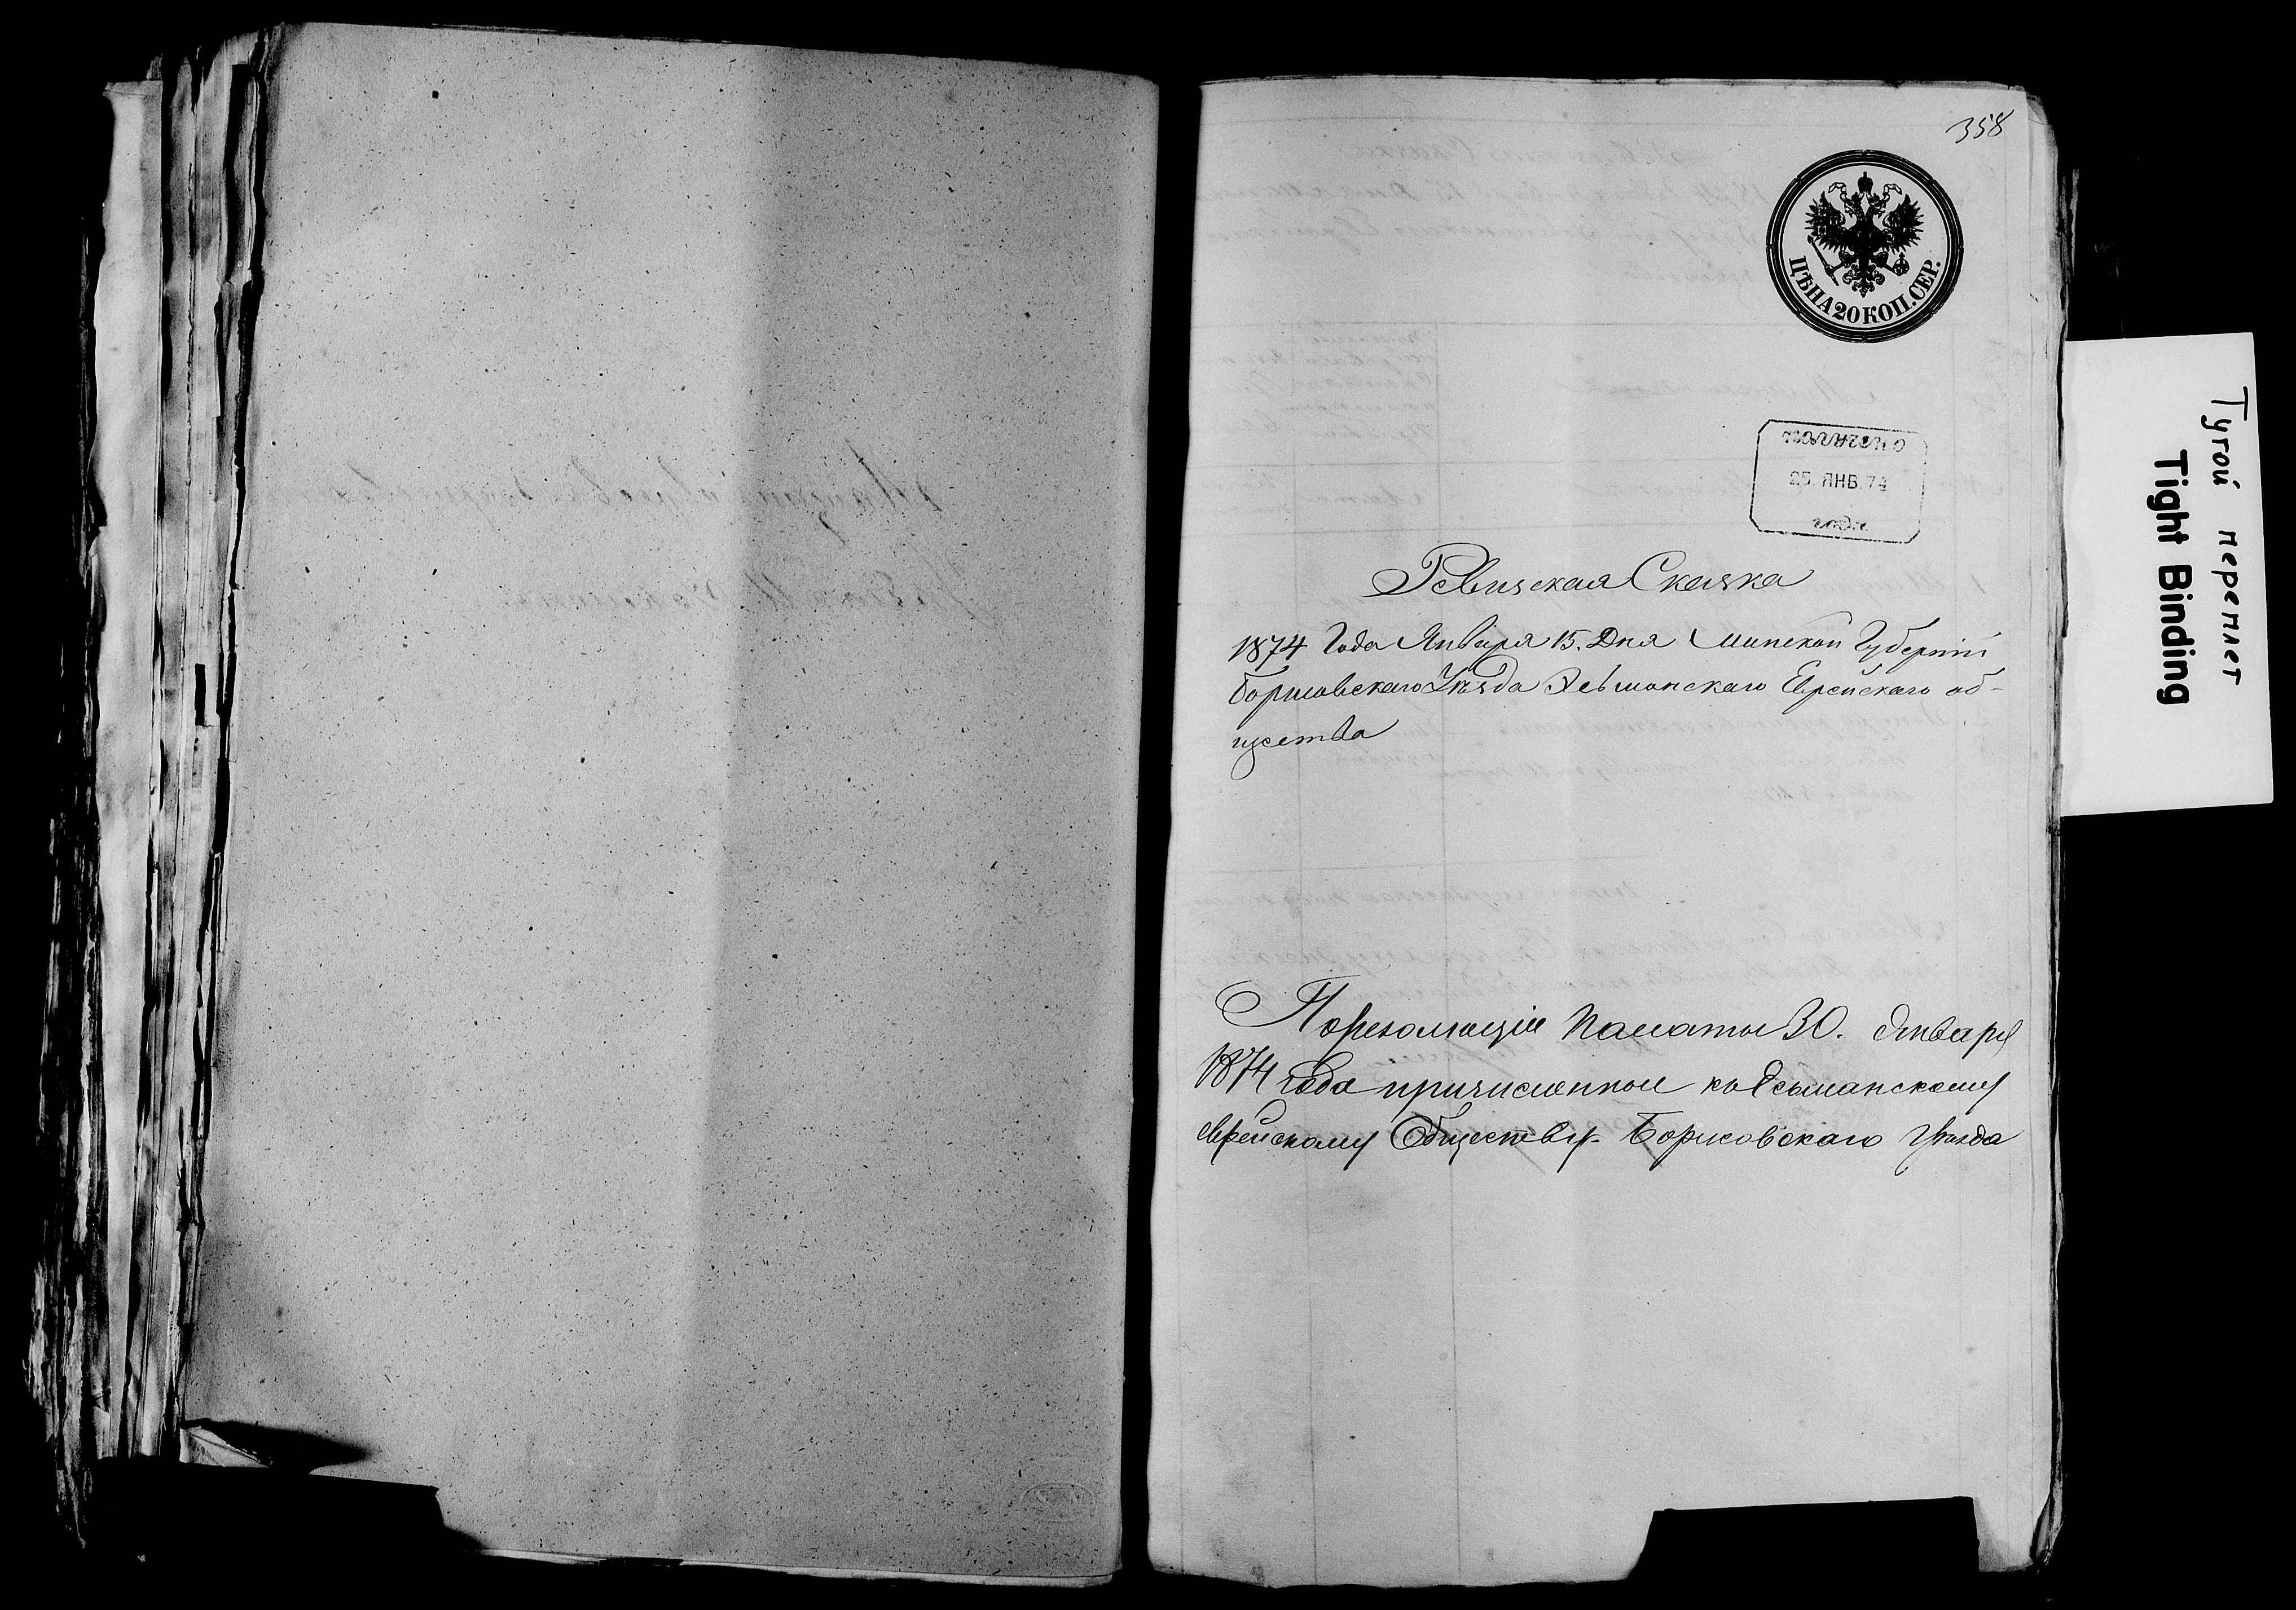 358
ЦѢНА 20 КОП. СЕР.
25. ЯНВ. 74
Ревизская Сказка
1874 Года Января 15. Дня Минской Губерніи
Борисовскаго Уѣзда Эсьмонскаго Еврейскаго об-
щества
По резолюціи Палаты 30. Января
1874 года причисленной къ Есьманскому
еврейскому Обществу Борисовскаго уѣзда
Тугой переплет
Tight Binding